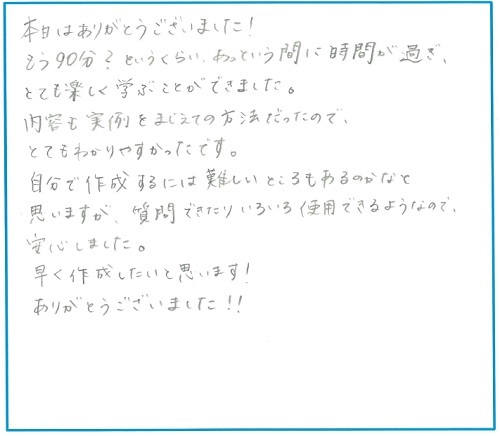 本日はありがとうございました！
もう90分？というくらい、あっという間に時間が過ぎ、
とても楽しく学ぶことができました。
内容も実例をまじえての方法だったので、
とてもわかりやすかったです。
自分で作成するには難しいところもあるのかなと
思いますが、質問できたりいろいろ使用できるようなので、
安心しました。
早く作成したいと思います！
ありがとうございました！！